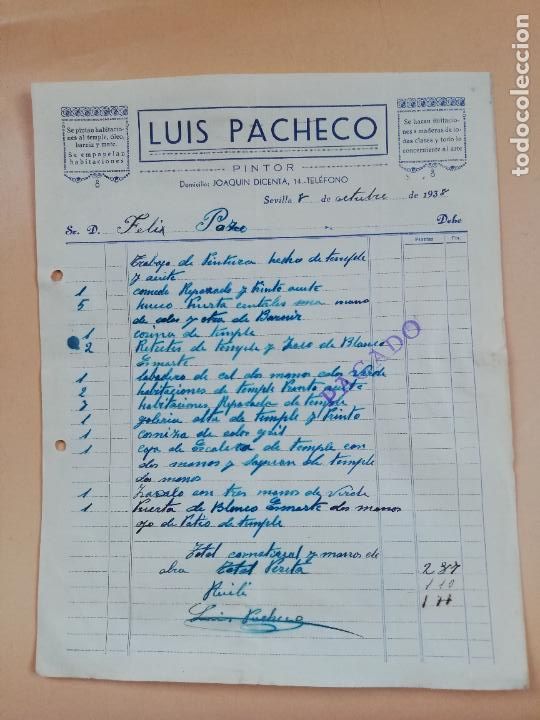 Se pintan habitacio-
nes al temple, óleo,
barniz y mate.
Se empapelan
habitaciones
LUIS PACHECO
PINTOR
Domicilio: JOAQUIN DICENTA, 14.-TELÉFONO
Se hacen imitacio-
nes a maderas de to-
das clases y todo lo
concerniente al arte
Sevilla 8 de octubre de 1938
Sr. D. Felix Pozo Debe
Pesetas Cts.
trabajo de Pintura hecho de temple
y aseite
1 comedo Reparado y Pinto aseite
5 hueco Puerta cristales una mano
de colo y otra de Barniz
1 cosina de temple
2 Retretes de temple y de Blanco
Esmarte
1 labadero de cal dos manos colo verde
2 habitaciones de temple Pinto aseite
3 habitaciones Reparada de temple
1 galeria alta de temple y Pinto
1 de colo
1 caja de Escalera de temple con
dos manos y de temple
dos manos
1 con tres manos de verde
1 Puerta de Blanco Esmarte dos manos
ojo de Patio de temple
Total y manos de
obra total Peseta 287
Recibi 110
177
Luis Pacheco
PAGADO
todocoleccion.net